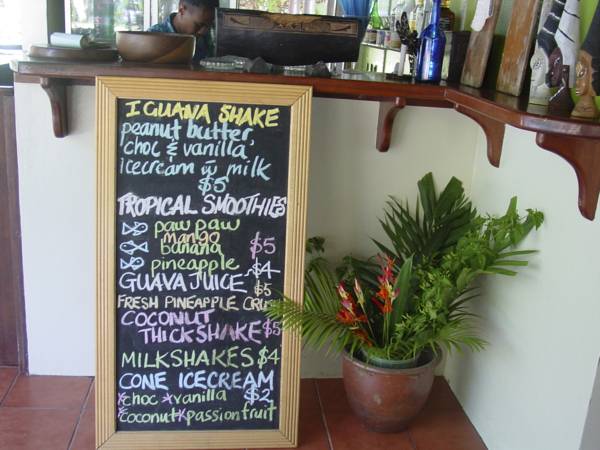 IGUANA SHAKE
peanut butter,
choc & vanilla
icecream w milk
$5
TROPICAL SMOOTHIES
paw paw
mango
banana $5
pineapple
GUAVA JUICE $4
FRESH PINEAPPLE CRUSH $5
COCONUT
THICKSHAKE $5
MILKSHAKES $4
CONE ICECREAM
choc vanilla $2
coconut passionfruit